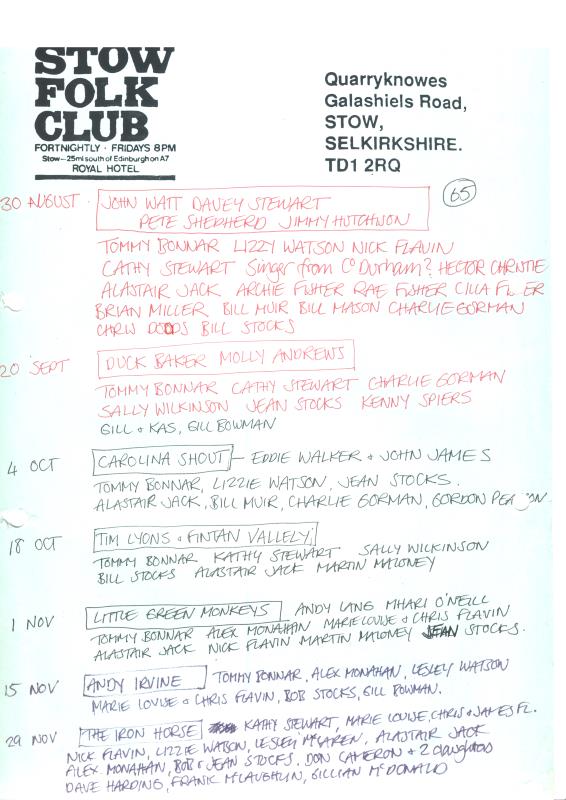 STOW
FOLK
CLUB
FORTNIGHTLY · FRIDAYS 8PM
Stow – 25ml south of Edinburgh on A7
ROYAL HOTEL
Quarryknowes
Galashiels Road,
STOW,
SELKIRKSHIRE.
TD1 2RQ
65
30 AUGUST · JOHN WATT DAVEY STEWART
PETE SHEPHERD JIMMY HUTCHISON
TOMMY BONNAR LIZZY WATSON NICK FLAVIN
CATHY STEWART Singer from Co Durham? HECTOR CHRISTIE
ALASTAIR JACK ARCHIE FISHER RAE FISHER CILLA F
BRIAN MILLER BILL MUIR BILL MASON CHARLIE GORMAN
CHRIS DODDS BILL STOCKS
20 SEPT DUCK BAKER MOLLY ANDREWS
TOMMY BONNAR CATHY STEWART CHARLIE GORMAN
SALLY WILKINSON JEAN STOCKS KENNY SPIERS
GILL + KAS, GILL BOWMAN
4 OCT CAROLINA SHOUT – EDDIE WALKER + JOHN JAMES
TOMMY BONNAR, LIZZIE WATSON, JEAN STOCKS.
ALASTAIR JACK, BILL MUIR, CHARLIE GORMAN, GORDON
18 OCT TIM LYONS + FINTAN VALLELY,
TOMMY BONNAR KATHY STEWART SALLY WILKINSON
BILL STOCKS ALASTAIR JACK MARTIN MALONEY
1 NOV LITTLE GREEN MONKEYS ANDY LANG MHARI O'NEILL
TOMMY BONNAR ALEX MONAHAN MARIE LOUISE + CHRIS FLAVIN
ALASTAIR JACK NICK FLAVIN MARTIN MALONEY JEAN STOCKS.
15 NOV ANDY IRVINE TOMMY BONNAR, ALEX MONAHAN, LESLEY WATSON
MARIE LOUISE + CHRIS FLAVIN, BOB STOCKS, GILL BOWMAN.
29 NOV THE IRON HORSE KATHY STEWART, MARIE LOUISE, CHRIS + JAMES FL.
NICK FLAVIN, LIZZIE WATSON, LESLEY McLAREN, ALASTAIR JACK
ALEX MONAHAN, BOB + JEAN STOCKS. DON CAMERON + 2 daughters
DAVE HARDING, FRANK McLAUGHLIN, GILLIAN McDONALD